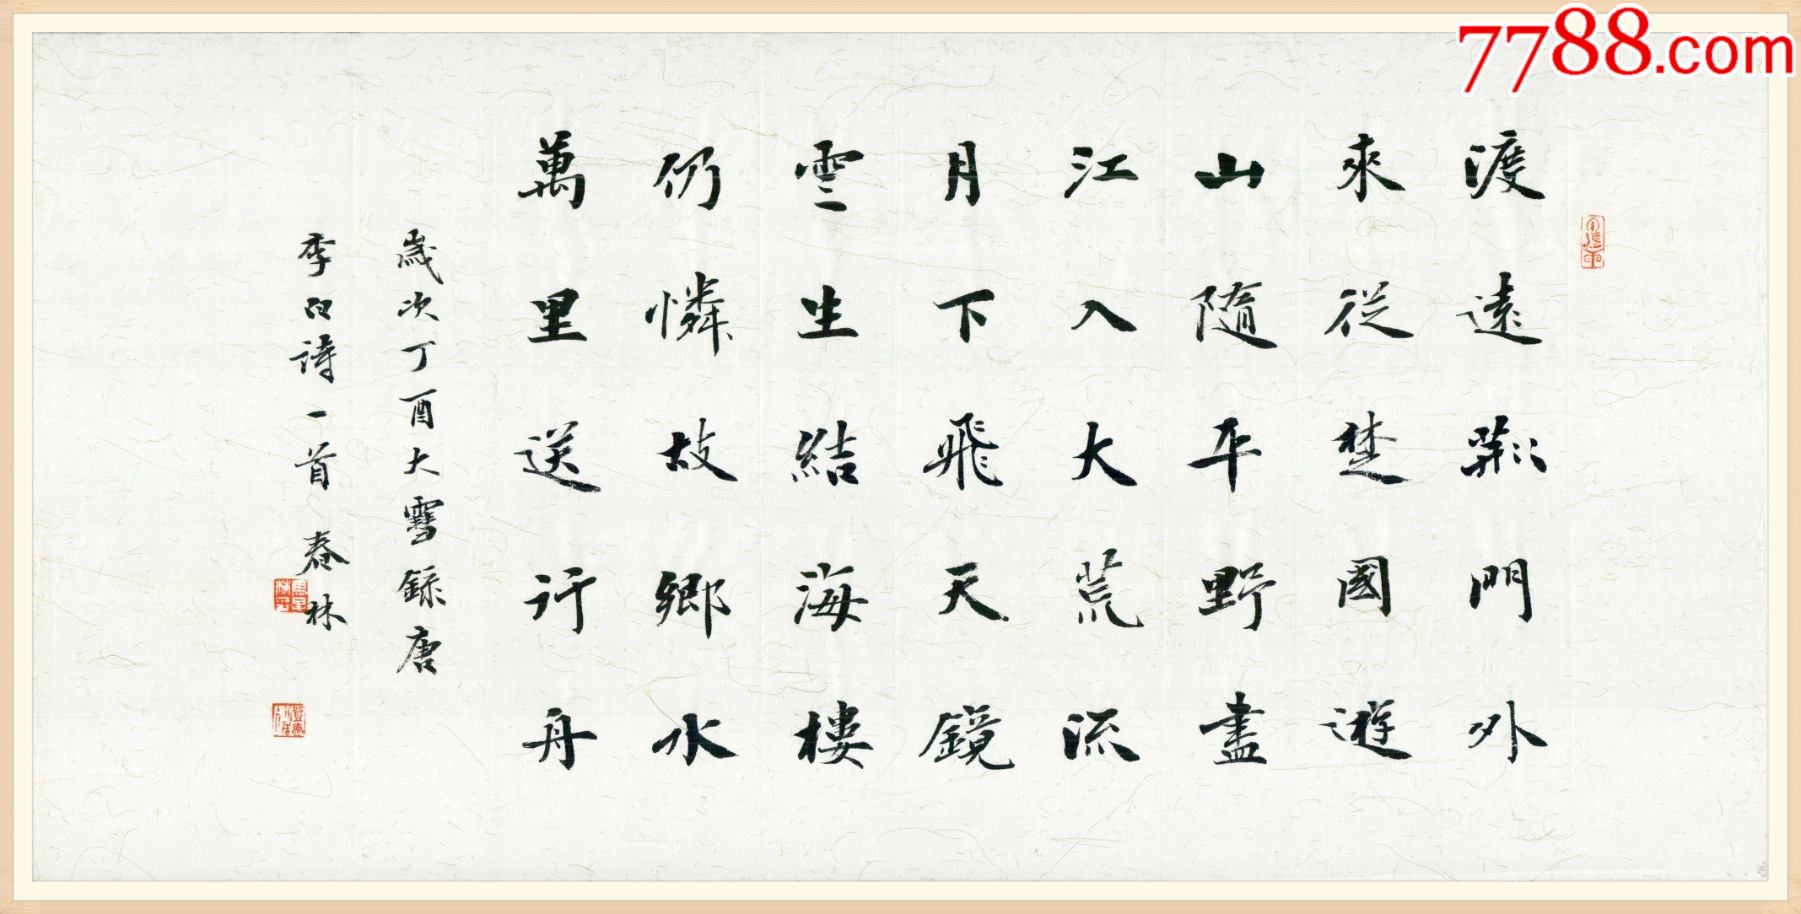 渡遠荆門外
來從楚國遊
山隨平野盡
江入大荒流
月下飛天鏡
雲生結海樓
仍憐故鄉水
萬里送行舟
歲次丁酉大雪錄唐
李白詩一首 春林
7788.com